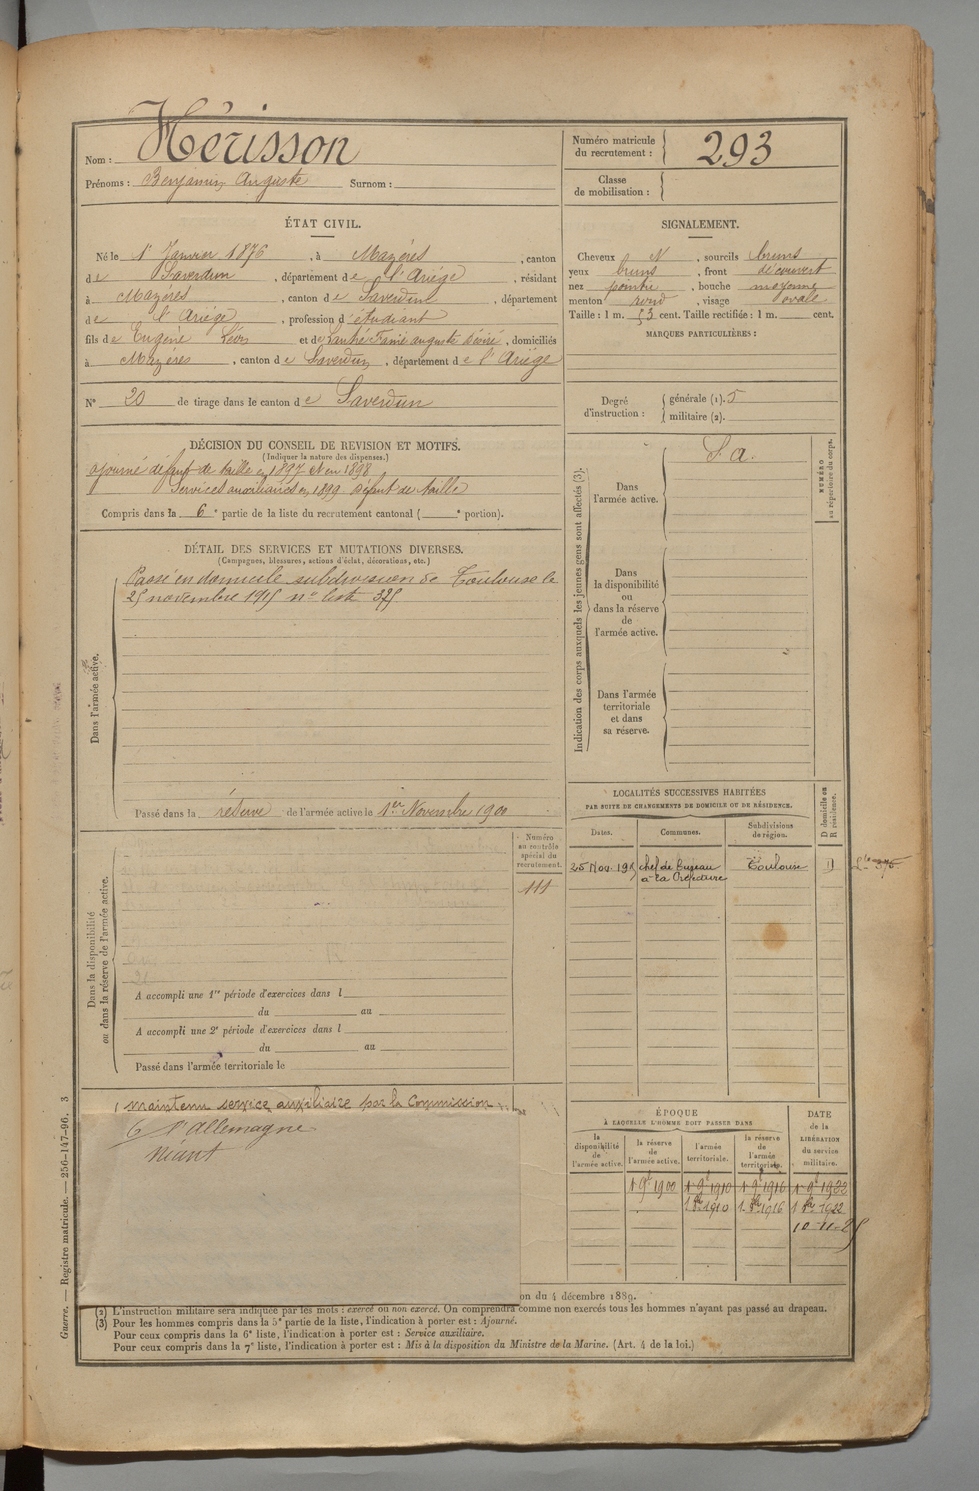 Nom : Hérisson
Prénoms : Benjamin Auguste Surnom :
Numéro matricule du recrutement : 293
Classe de mobilisation :
ÉTAT CIVIL.
Né le 1er Janvier 1876, à Mazéres, canton
de Saverdun, département de l'Ariége, résidant
à Mazéres, canton de Saverdun, département
de l'Ariége, profession d'étudiant
fils de Eugéne Léon et de auguste, domiciliés
à Mazéres, canton de Saverdun, département de l'Ariége
N° 20 de tirage dans le canton de Saverdun
SIGNALEMENT.
Cheveux N, sourcils bruns
yeux bruns, front découvert
nez pointu, bouche moyenne
menton rond, visage ovale
Taille : 1 m. 53 cent. Taille rectifiée : 1 m. cent.
MARQUES PARTICULIÈRES :
Degré d'instruction : générale (1). 5
militaire (2).
DÉCISION DU CONSEIL DE REVISION ET MOTIFS.
(Indiquer la nature des dispenses.)
ajourné défaut de taille en 1897 et en 1898
Services auxiliaires en 1899 défaut de taille
Compris dans la 6e partie de la liste du recrutement cantonal ( e portion).
DÉTAIL DES SERVICES ET MUTATIONS DIVERSES.
(Campagnes, blessures, actions d'éclat, décorations, etc.)
Dans l'armée active.
Passé en domicile subdivision de Toulouse le
25 novembre 1915 n° liste 375
Passé dans la réserve de l'armée active le 1er Novembre 1900
Indication des corps auxquels les jeunes gens sont affectés (3).
NUMÉRO au répertoire du corps.
Dans l'armée active.
S. a.
Dans la disponibilité ou dans la réserve de l'armée active.
Dans l'armée territoriale et dans sa réserve.
LOCALITÉS SUCCESSIVES HABITÉES
PAR SUITE DE CHANGEMENTS DE DOMICILE OU DE RÉSIDENCE.
D domicile ou R résidence.
Dates. Communes. Subdivisions de région.
25 Nov. 1915 chef de bureau Toulouse D
à la Préfecture
Dans la disponibilité ou dans la réserve de l'armée active.
Numéro au contrôle spécial du recrutement.
111
A accompli une 1re période d'exercices dans l
du au
A accompli une 2e période d'exercices dans l
du au
Passé dans l'armée territoriale le
maintenu service auxiliaire par la Commission
d'allemagne
Néant
ÉPOQUE
À LAQUELLE L'HOMME DOIT PASSER DANS
la disponibilité de l'armée active.
la réserve de l'armée active.
l'armée territoriale.
la réserve de l'armée territoriale.
DATE de la LIBÉRATION du service militaire.
1 9e 1900 1 9e 1910 1 9e 1916 1 9e 1922
1910 1916 1922
10-11-25
on du 4 décembre 1889.
(2) L'instruction militaire sera indiquée par les mots : exercé ou non exercé. On comprendra comme non exercés tous les hommes n'ayant pas passé au drapeau.
(3) Pour les hommes compris dans la 5e partie de la liste, l'indication à porter est : Ajourné.
Pour ceux compris dans la 6e liste, l'indication à porter est : Service auxiliaire.
Pour ceux compris dans la 7e liste, l'indication à porter est : Mis à la disposition du Ministre de la Marine. (Art. 4 de la loi.)
Guerre. — Registre matricule. — 256-147-96. 3